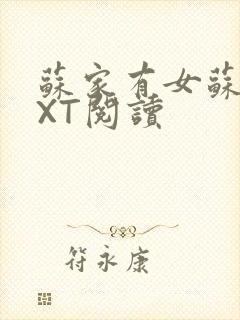 蘇家有女蘇
XT閱讀
符永康